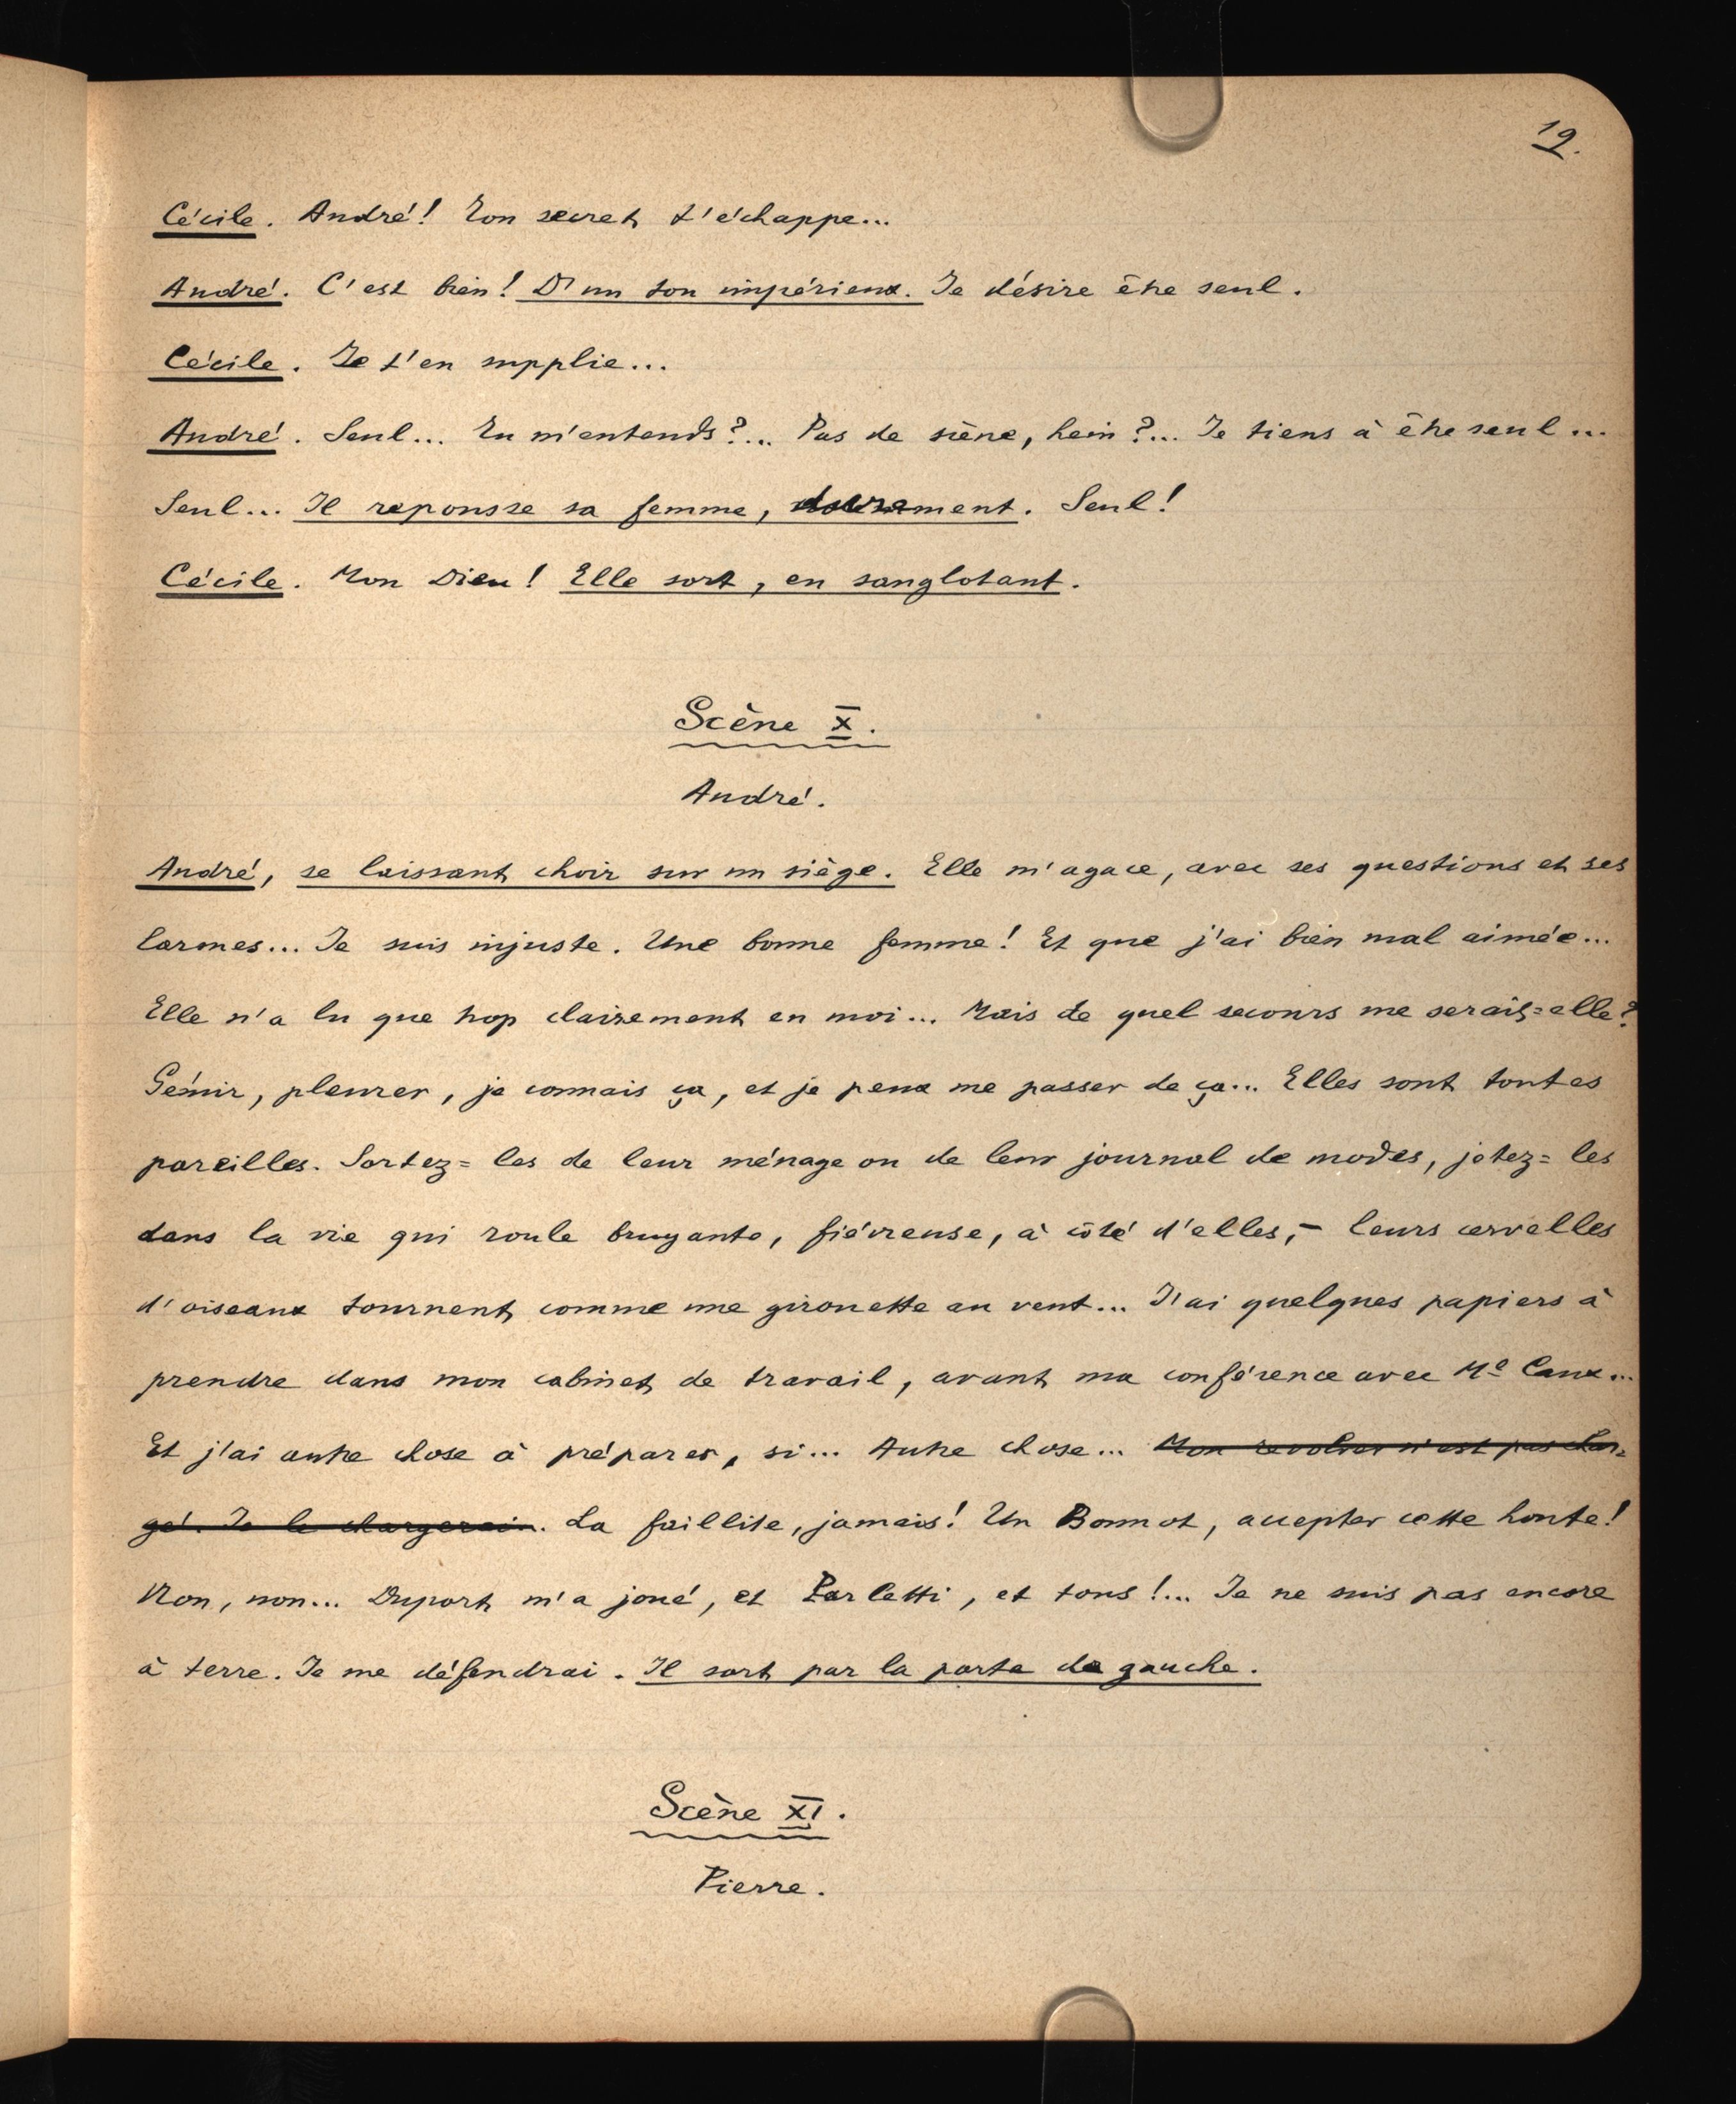 12.
Cécile. André! Ton secret t'échappe...
André. C'est bien! D'un ton impérieux. Je désire être seul.
Cécile. Je t'en supplie...
André. Seul... Tu m'entends?... Pas de scène, hein?... Je tiens à être seul...
Seul... Il repousse sa femme, durement. Seul!
Cécile. Mon Dieu! Elle sort, en sanglotant.
Scène X.
André.
André, se laissant choir sur un siège. Elle m'agace, avec ses questions et ses
larmes... Je suis injuste. Une bonne femme! Et que j'ai bien mal aimée...
Elle n'a lu que trop clairement en moi... Mais de quel secours me serait=elle?
Gémir, pleurer, je connais ça, et je peux me passer de ça... Elles sont toutes
pareilles. Sortez=les de leur ménage ou de leur journal de modes, jetez=les
dans la vie qui roule bruyante, fiévreuse, à côté d'elles, – leurs cervelles
d'oiseaux tournent comme une girouette au vent... J'ai quelques papiers à
prendre dans mon cabinet de travail, avant ma conférence avec Me Caux...
Et j'ai autre chose à préparer, si... Autre chose... Mon revolver n'est pas char=
gé. Je le chargerai. La faillite, jamais! Un Bonnot, accepter cette honte!
Non, non... Duport m'a joué, et Parletti, et tous!... Je ne suis pas encore
à terre. Je me défendrai. Il sort par la porte de gauche.
Scène XI.
Pierre.